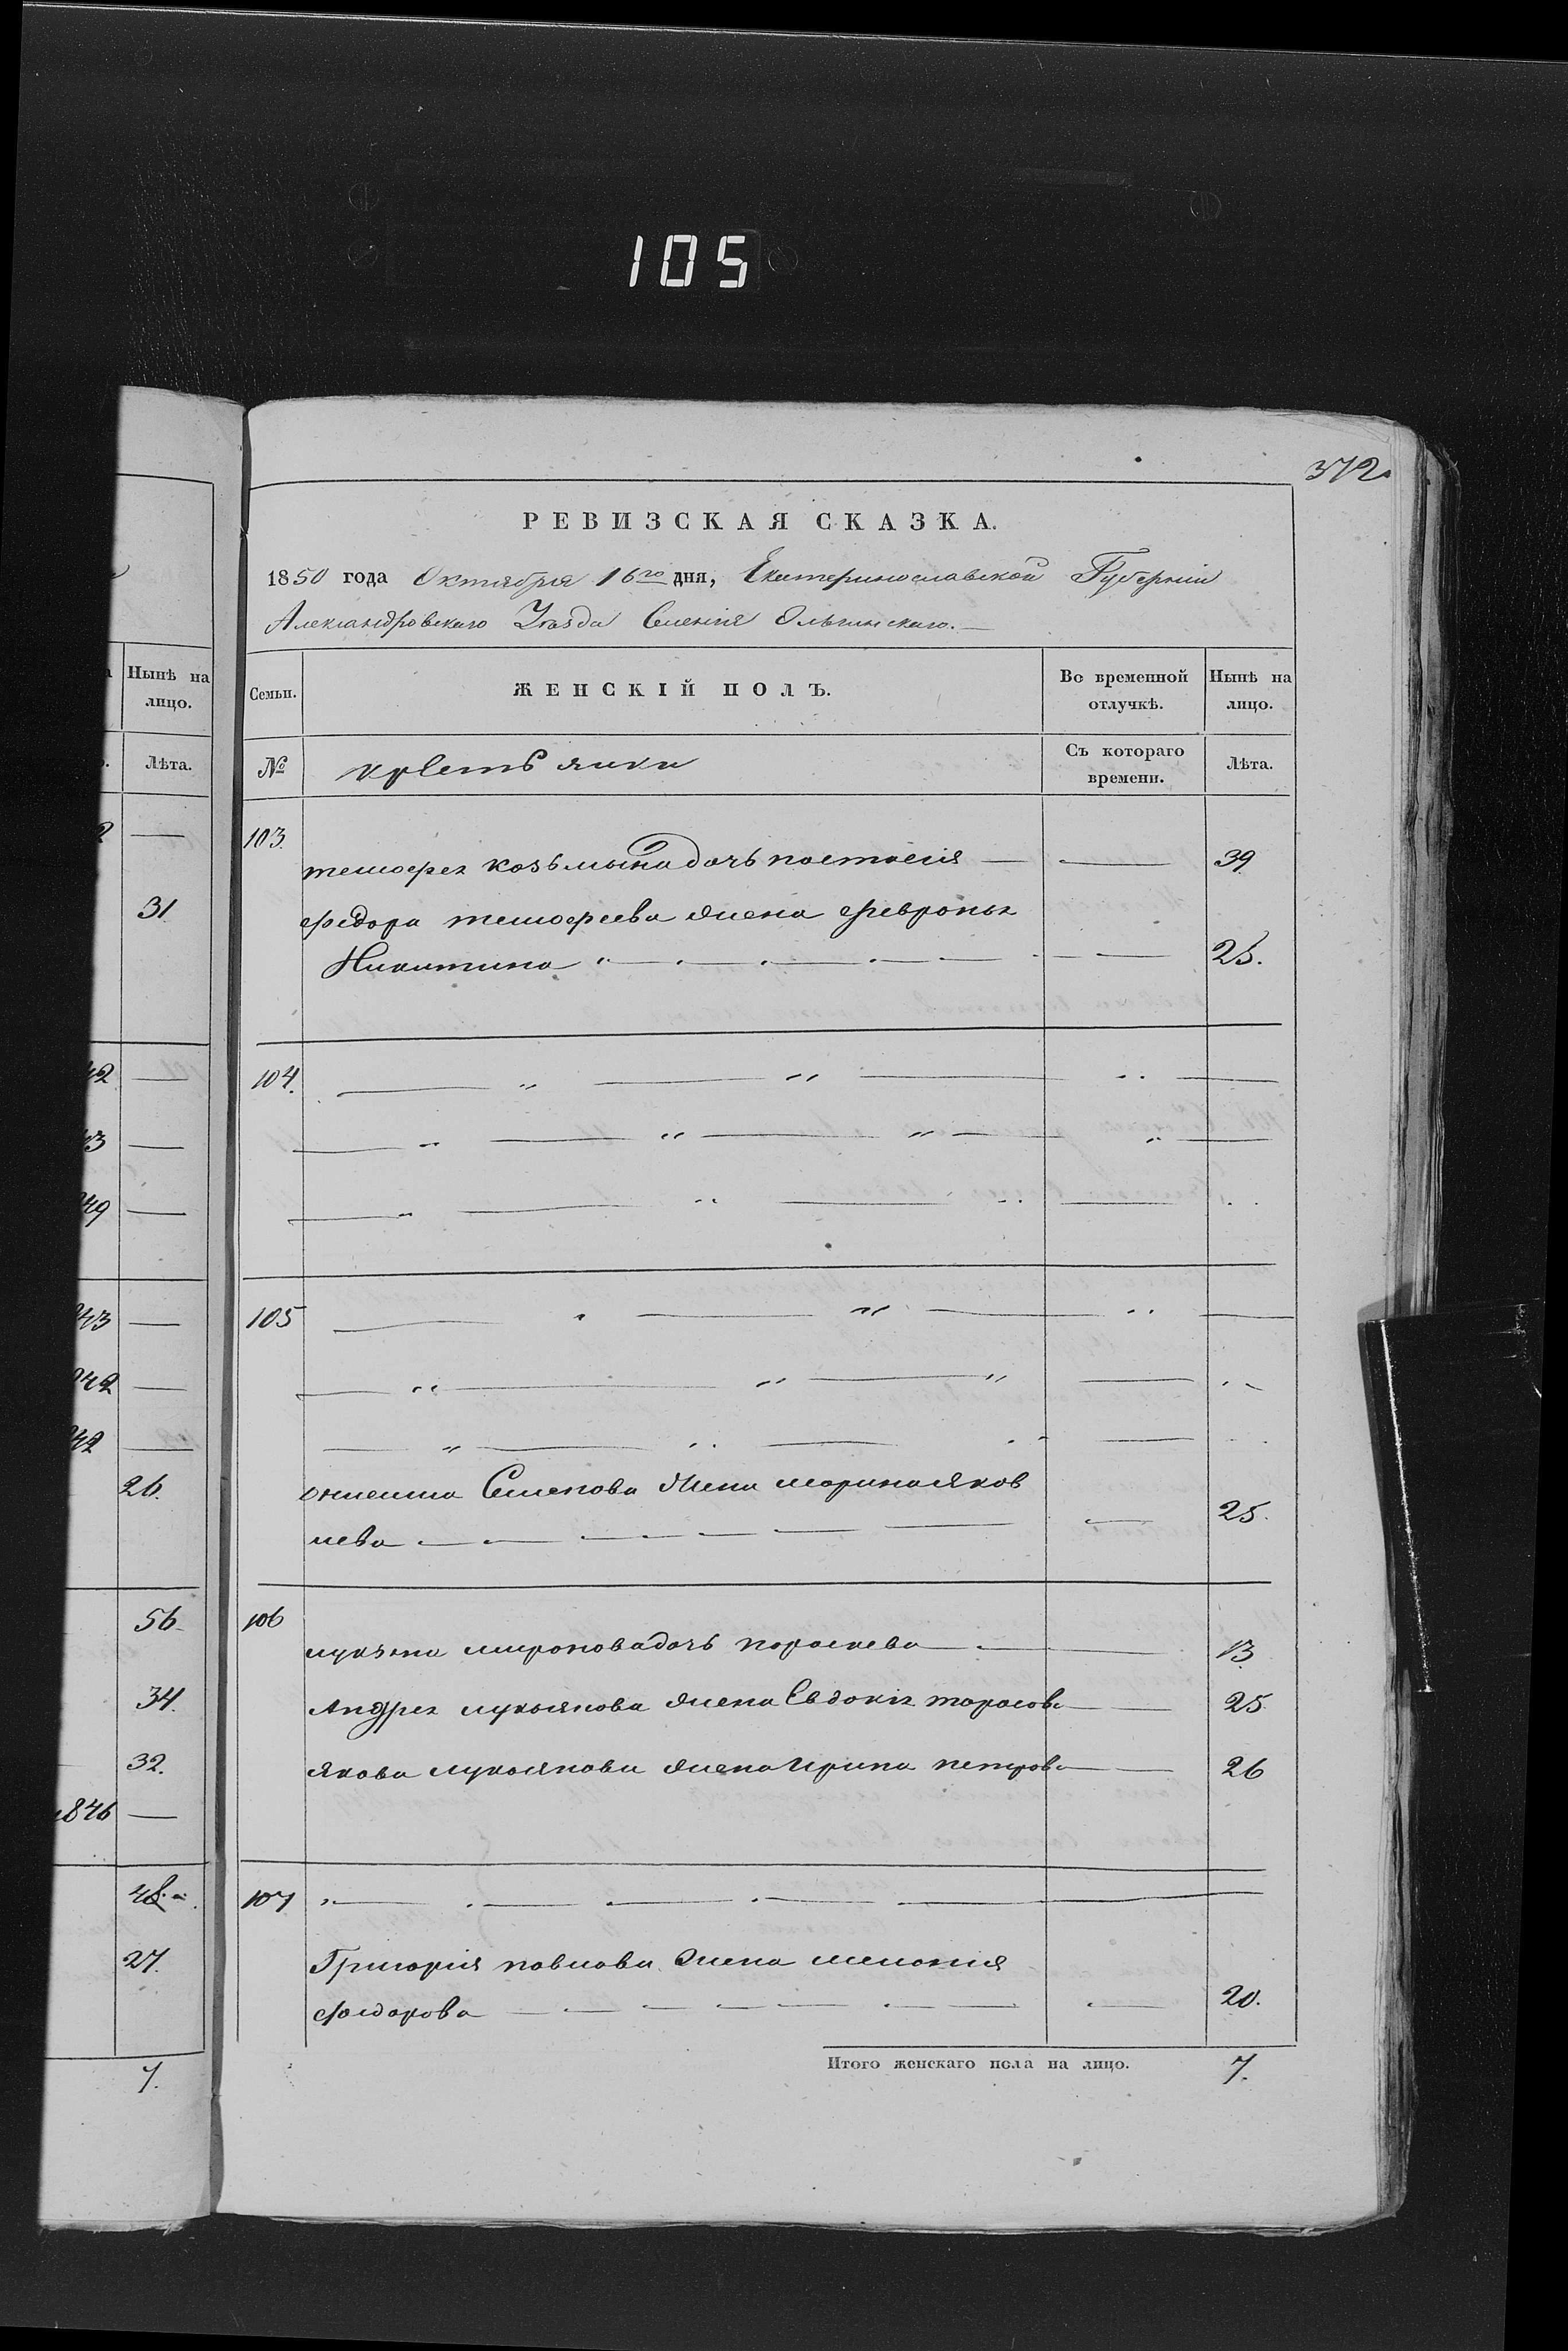 105
372
РЕВИЗСКАЯ СКАЗКА.
1850 года Октября 16го дня, Екатеринославской Губернии
Александровскаго Уезда Селения Ольгинскаго.
Нынѣ на лицо.
Лѣта.
31
42
43
49
43
42
42
26.
56
34.
32.
1846
27.
7.
Семьи.
ЖЕНСКІЙ ПОЛЪ.
Во временной отлучкѣ.
Нынѣ на лицо.
№
крестьянки
Съ котораго времени.
Лѣта.
103. тимофея козьмына дочь настасия — — 39
федора тимофеева жена февронья
Никитина — — 25.
104.
105
Семенова жена марина яков
лева — — 25.
106
лукяна миронова дочь пораскева — 13
Андрея лукьянова жена Евдокия тарасова — 25
якова лукоянова жена Ирина петрова — 26
107
Григория павлова жена мелания
федорова — — 20.
Итого женскаго пола на лицо. 7.